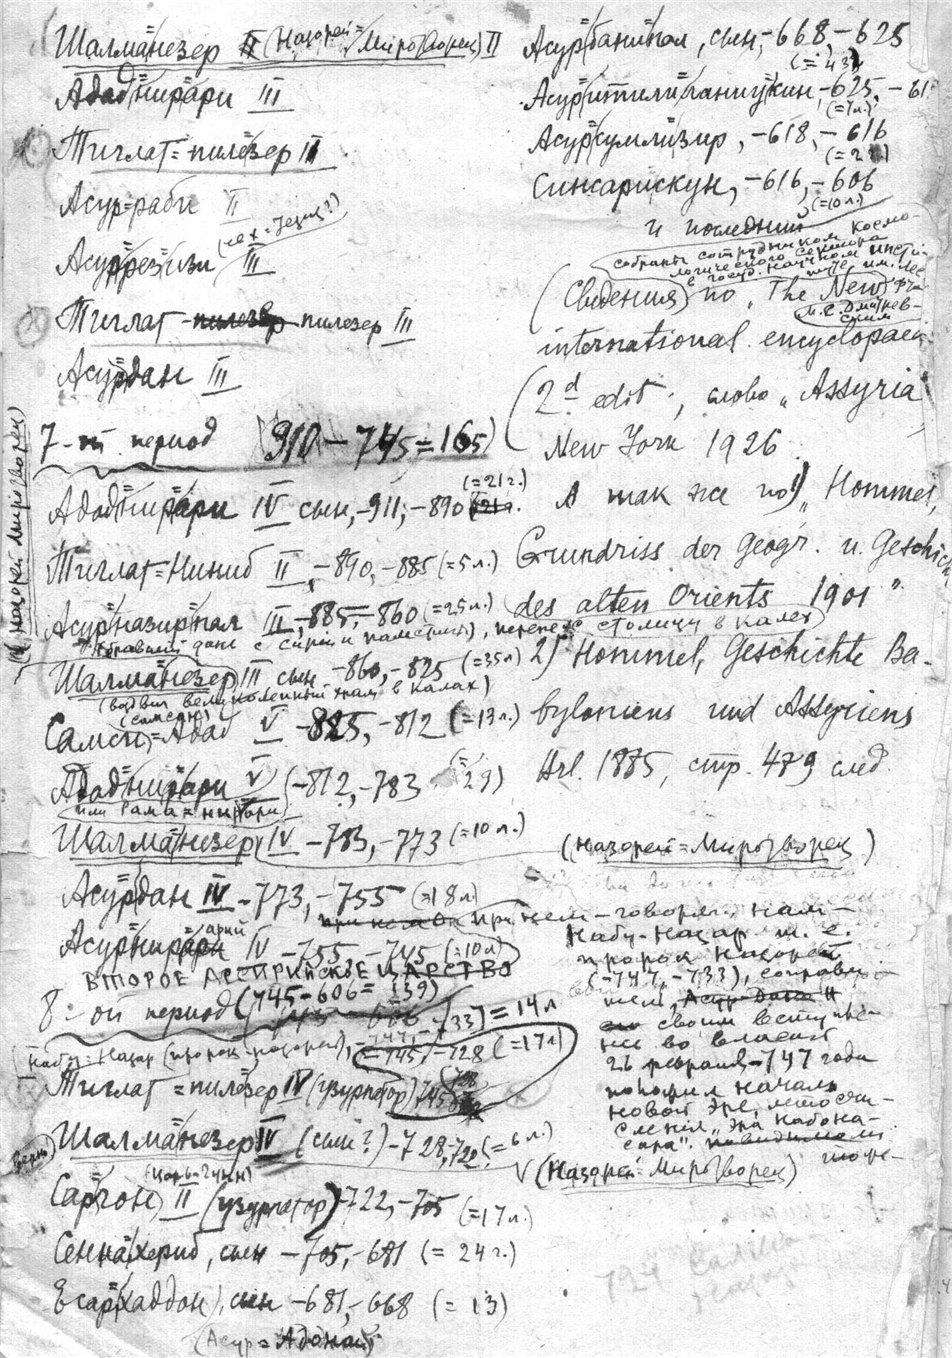 Шалманезер II (Назорей Миротворец) II
Адад=нирари III
Тиглат=пилезер II
Асур=раби II
Асуррезизи III
Тиглат-пилезер пилезер III
Асурдан III
7-й период (910 — 745 = 165)
(Назорей Миротворец)
Адад=нирари IV сын, -911, -890 (=21 г.)
Тиглат=Ниниб II, -890, -885 (=5 л.)
Асурназирпал III, -885, -860 (=25 л.)
(бравший дани с Сирии и Палестины), перенес столицу в Калех)
Шалманезер III сын -860, -825 (=35 л)
(воздвиг великолепный храм в Калах)
(Самсон)
Самси=Адад V -825, -812 (=13 л.)
Адад=нирари V (-812, -783 (=29)
или Рама=нирари
Шалманезер IV -783, -773 (=10 л.)
Асурдан IV -773, -755 (=18 л)
Асурнирари IV -755, -745 (=10 л)
ВТОРОЕ АССИРИЙСКОЕ ЦАРСТВО
8-ой период (745-606= 139)
Набу=Назар (пророк-назорей), -747, -733) = 14 л
-745, -728 (=17 л)
Тиглат=пилезер IV (узурпатор) 745
Шалманезер IV (сын?) -728, 722 (= 6 л.)
(Царь-Гунн)
Саргон, II (узурпатор) -722, -705 (=17 л.)
Сеннахериб, сын -705, -681 (= 24 г.)
Есархаддон, сын -681, -668 (= 13)
(Асур=Адонай)
Асурбанипал, сын, -668, -625
(= 43)
Асуритилиланиукин, -625, -61
(=7 л.)
Асурсумлизир, -618, -616
(= 2)
Синсарискун, -616, -606
(=10 л.)
и последний
собраны сотрудником космо-
логического сектора
в госуд. научном инсти-
туте им. Лес-
(Сведения) по „The New
international encyclopaed
(2d edit, слово „Assyria"
New York 1926
А так же по 1) „Hommel,
Grundriss der Geogr. u. Geschich
des alten Orients 1901"
2) Hommel, Geschichte Ba-
byloniens und Assyriens
Brl. 1885, стр. 479 след.
(Назорей=Миротворец)
при нем — говорят нам —
Набу-Назар т. е.
пророк Назорей
(-747, -733),
своим вступле-
нием во власть
26 февраля -747 года
положил начало
новой эре, летосчи-
сления „эра Набона-
сара".
V (Назорей Миротворец)